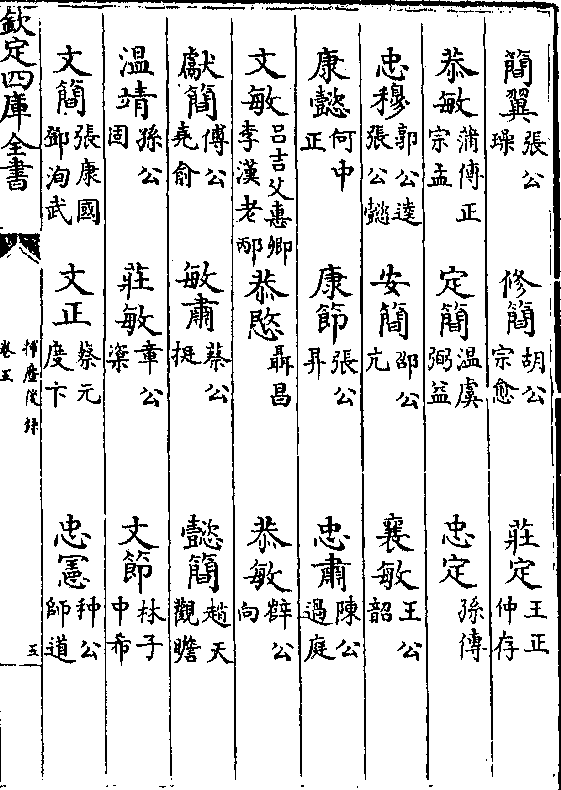 簡翼張公璪　修簡胡公宗愈　莊定王正仲存
恭敏蒲傳正宗孟　定簡温虞弼益　忠定孫傳
忠穆郭公逵張公慤　安簡邵公亢　襄敏王公韶
康懿何中正　康節張公昇　忠肅陳公過庭
文敏吕吉父惠卿李漢老邴　恭愍聶昌　恭敏薛公向
獻簡傅公堯俞　敏肅蔡公挺　懿簡趙天觀瞻
温靖孫公固　莊敏章公楶　文節林子中希
文簡張康國鄧洵武　文正蔡元度卞　忠憲种公師道
欽定四庫全書
揮麈後録
卷五
五